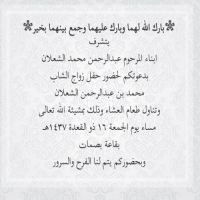 ❋بارك الله لهما وبارك عليهما وجمع بينهما بخير❋
يتشرف
ابناء المرحوم عبدالرحمن محمد الشعلان
بدعوتكم لحضور حفل زواج الشاب
محمد بن عبدالرحمن الشعلان
وتناول طعام العشاء وذلك بمشيئة الله تعالى
مساء يوم الجمعة ١٦ ذو القعدة ١٤٣٧هـ
بقاعة بصمات
وبحضوركم يتم لنا الفرح والسرور